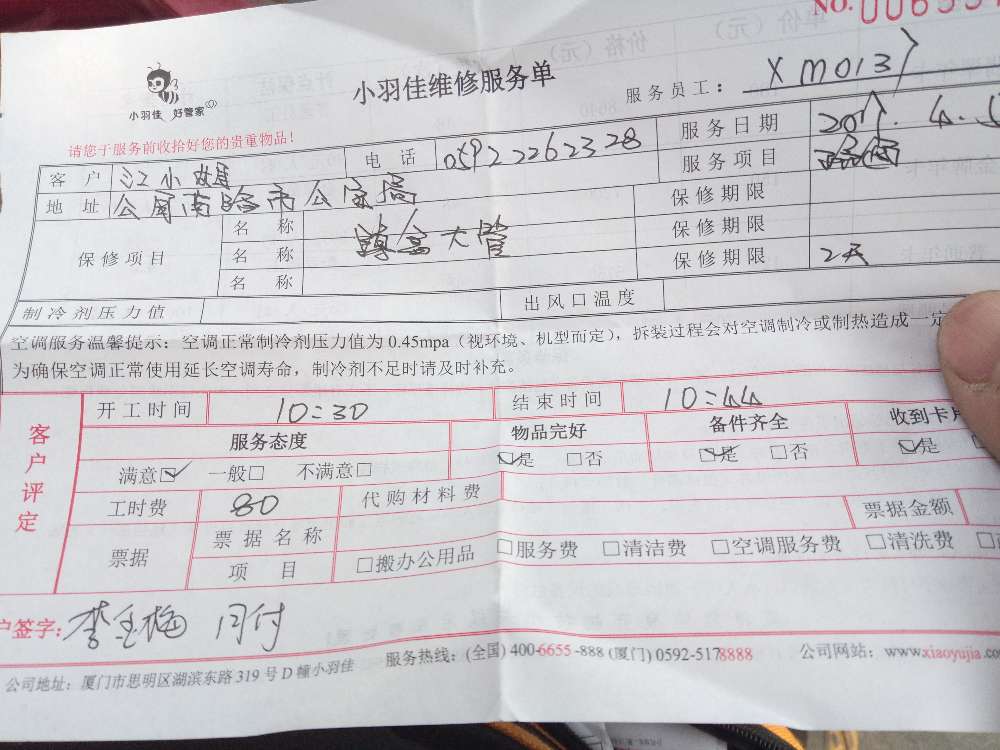 NO.
小羽佳 好管家
小羽佳维修服务单
服务员工： XM0137
请您于服务前收拾好您的贵重物品!
客户 江小姐 电话 2262328 服务日期 4.
地址 公安局 服务项目
保修项目 名称 保修期限
名称 大管 保修期限
名称 保修期限 2天
制冷剂压力值 出风口温度
空调服务温馨提示：空调正常制冷剂压力值为 0.45mpa（视环境、机型而定），拆装过程会对空调制冷或制热造成一定
为确保空调正常使用延长空调寿命，制冷剂不足时请及时补充。
客户评定
开工时间 10:30 结束时间 10:44
服务态度 物品完好 备件齐全 收到卡片
满意☑ 一般□ 不满意□ ☑是 □否 ☑是 □否 ☑是
工时费 80 代购材料费
票据 票据名称 票据金额
项目 □搬办公用品 □服务费 □清洁费 □空调服务费 □清洗费
户签字： 李金梅 月付
公司地址：厦门市思明区湖滨东路 319 号 D 幢小羽佳 服务热线：(全国) 400-6655-888 (厦门) 0592-5178888 公司网站：www.xiaoyujia.co